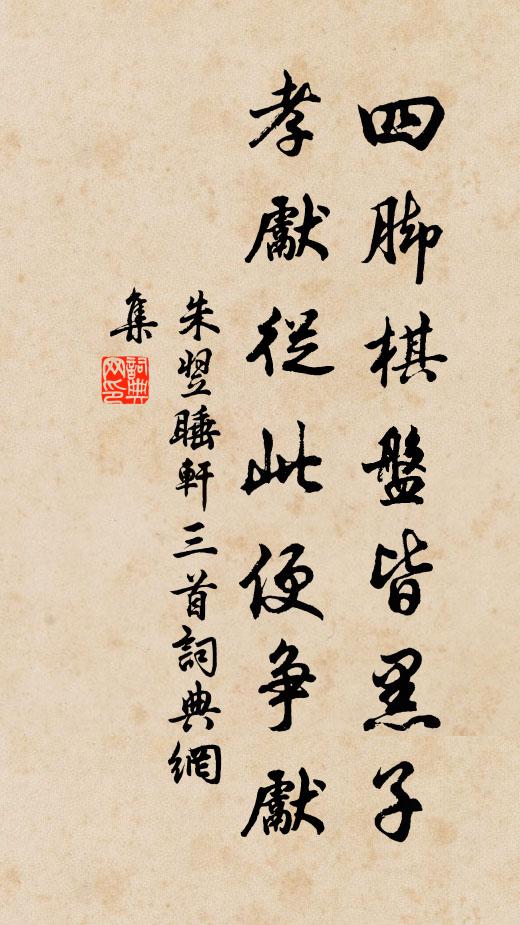 四脚棋盤皆黑子
孝獻從此便争獻
朱翌睡軒三首詞典網
集
詞典
网印